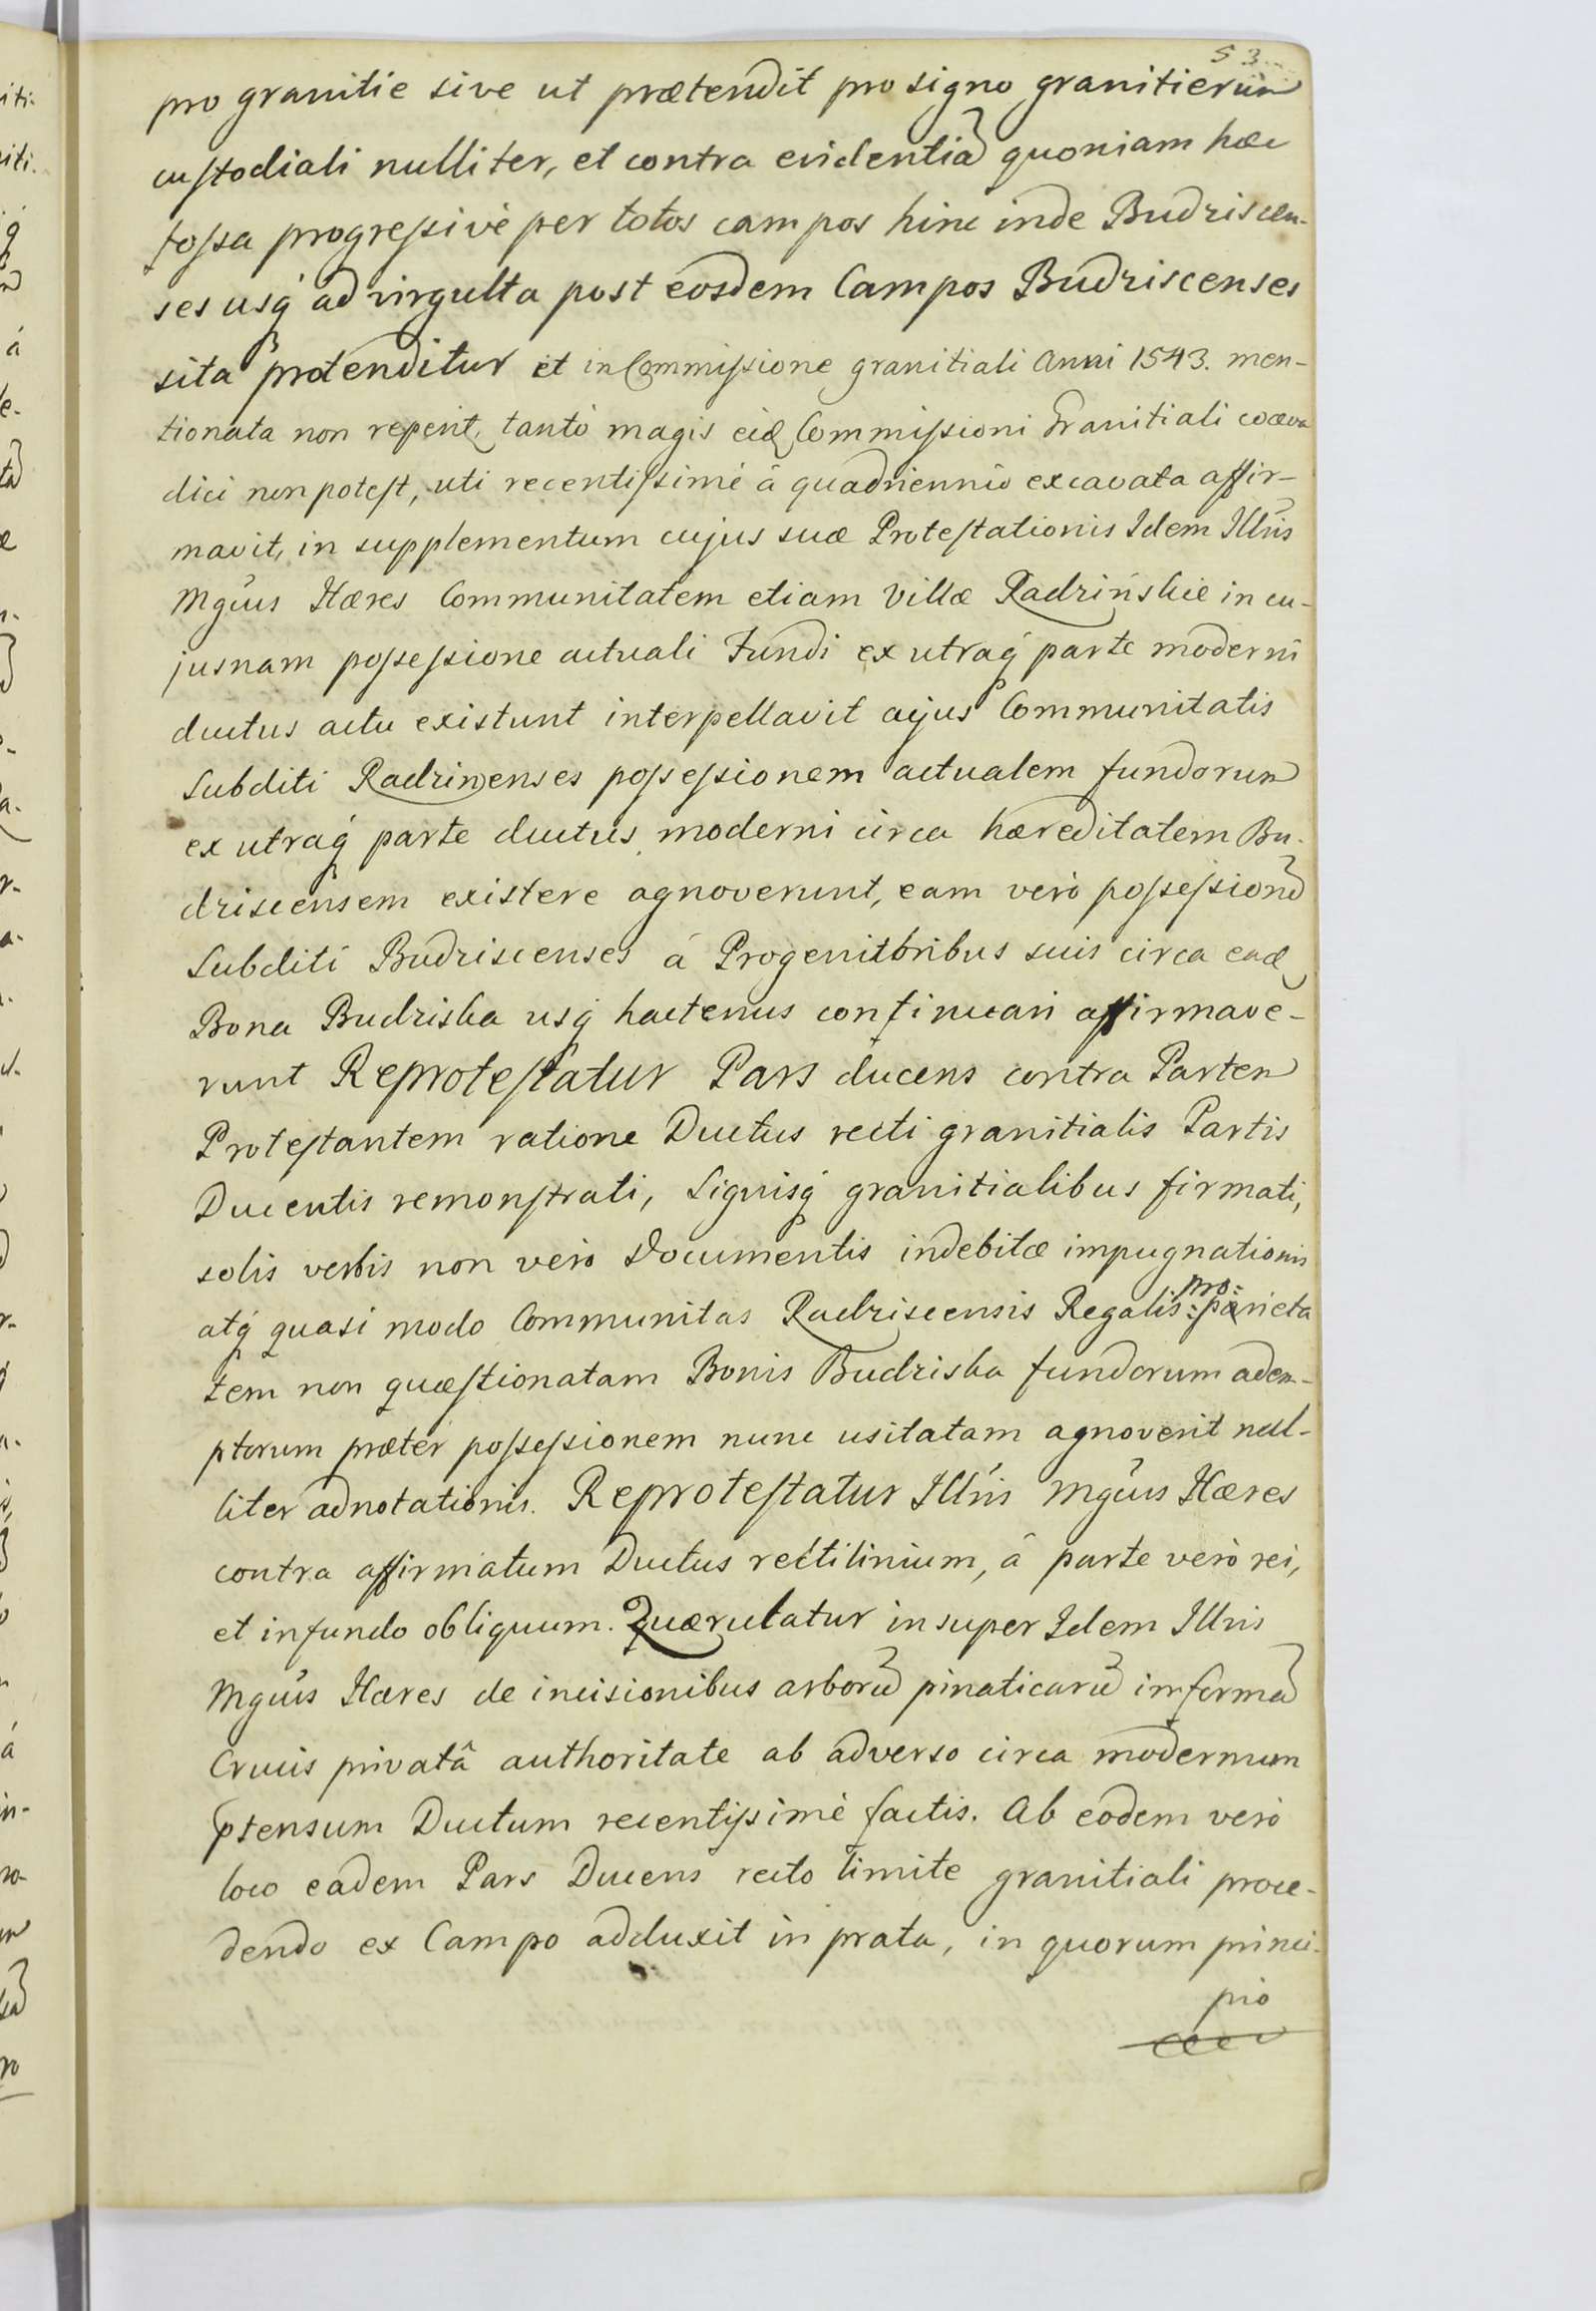 53.
pro granitie sive ut prætendit pro signo granitierum
custodiali nulliter, et contra evidentiã quoniam hæc
fossa progressivè per totos campos hinc inde Budriscen-
ses usq́ ad virgulta post eosdem Campos Budriscenses
sita protenditur et in Commissione granitiali Anni 1543. men-
tionata non reperit, tantò magis eid Commissioni Granitiali coæva
dici non potest, uti recentissimè à quadriennio excavata affir-
mavit, in supplementum cujus suæ Protestationis Idem Illris
Mgcus Hæres Communitatem etiam Villæ Radzińskie in cu-
jusnam possessione actuali Fundi ex utraq́ parte moderni
ductus actu existunt interpellavit cujus Communitatis
Subditi Radzinenses possessionem actualem fundorum
ex utraq́ parte ductus moderni circa hæreditatem Bu-
driscensem existere agnoverunt, eam verò possessionẽ
Subditi Budriscenses à Progenitoribus suis circa ead
Bona Budziska usq́ hactenus continuari affirmave-
runt Reprotestatur Pars ducens contra Partem
Protestantem ratione Ductus recti granitialis Partis
Ducentis remonstrati, Signisq́ granitialibus firmati,
solis verbis non verò Documentis indebitæ impugnationis
atq́ quasi modo Communitas Radziscensis Regalis :pro: parieta
tem non quæstionatam Bonis Budziska fundorum adem-
ptorum præter possessionem nunc usitatam agnoverit nul-
liter adnotationis. Reprotestatur Illris Mgcus Hæres
contra affirmatum Ductus rectilinium, à parte verò rei,
et in fundo obliquum. Quærulatur insuper Idem Illris
Mgcus Hæres de incisionibus arborũ pinaticarũ in formã
Crucis privatâ authoritate ab adverso circa modernum
ptensum Ductum recentissimè factis. Ab eodem verò
loco eadem Pars Ducens recto limite granitiali proce-
dendo ex Campo adduxit in prata, in quorum princi-
pio